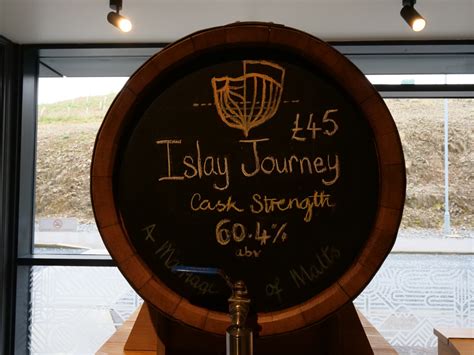 £45
Islay Journey
Cask Strength
60.4%
abv
A Marriage of Malts